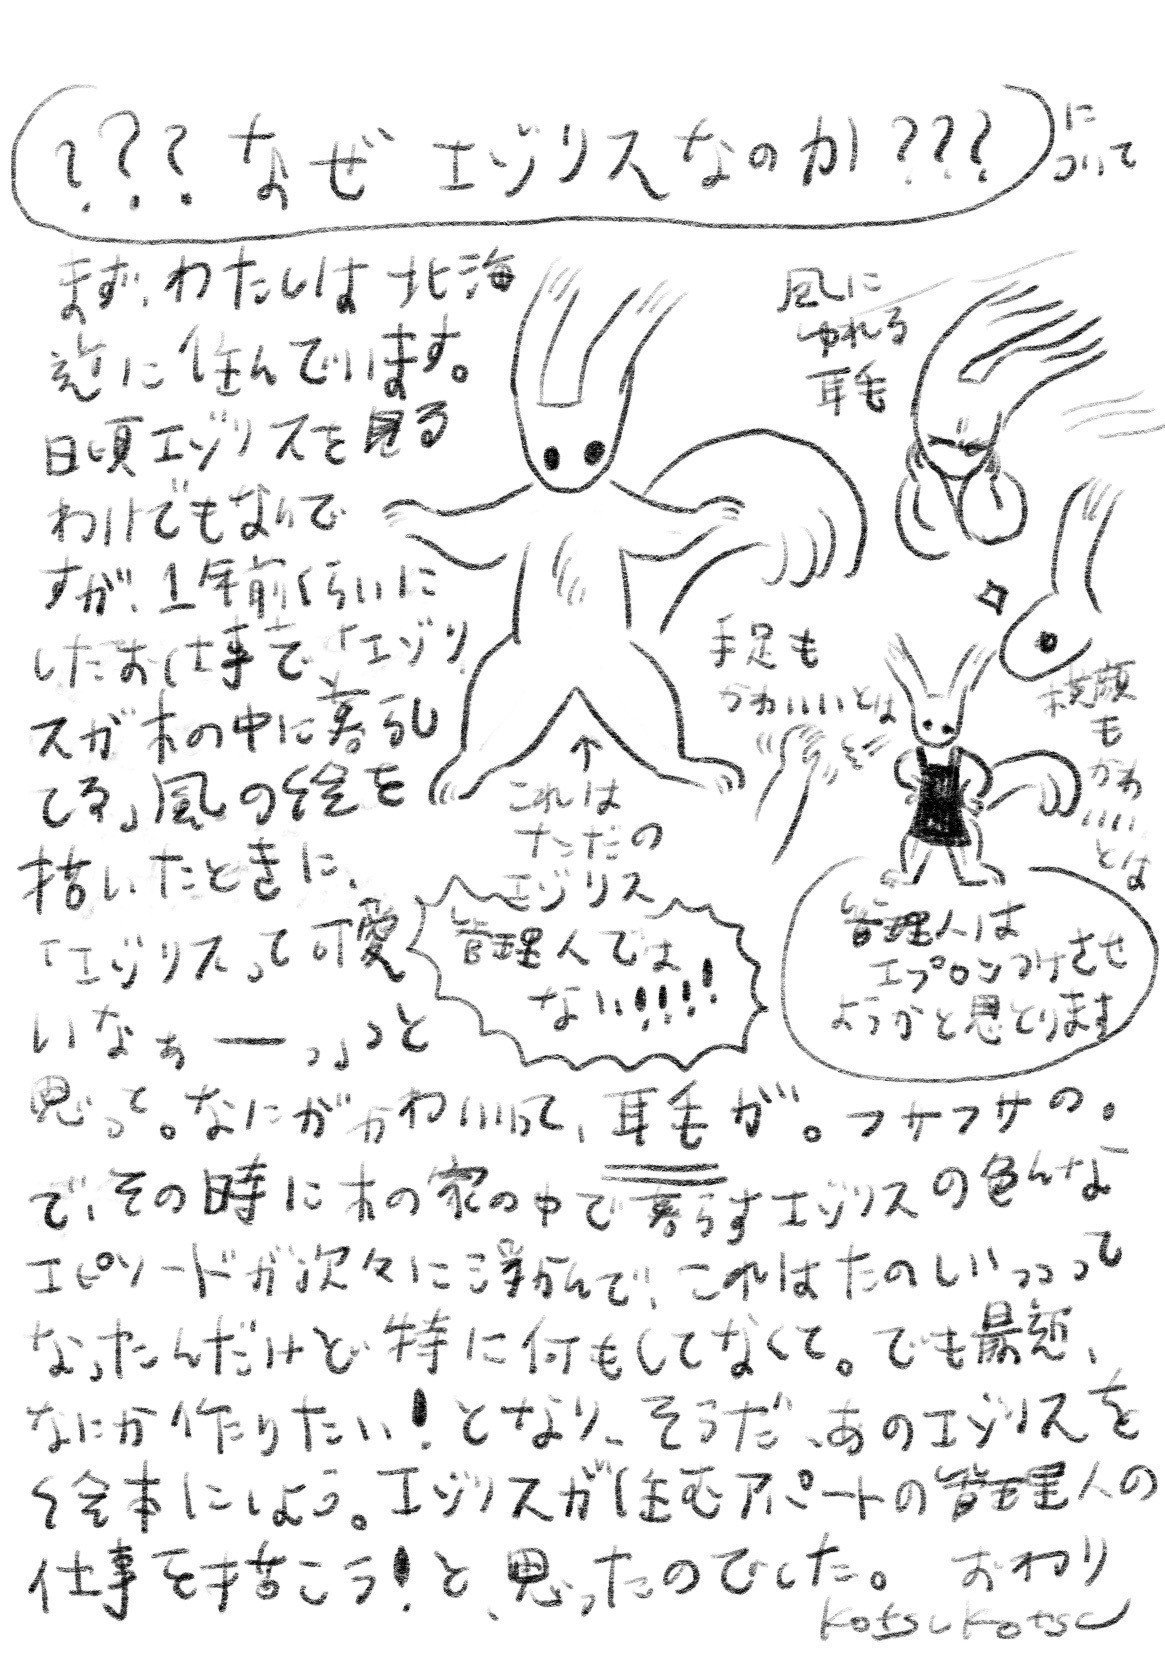 ??? なぜ エゾリス なのか ???
に
ついて
まず、わたしは北海
道に住んでいます。
日頃エゾリスを見る
わけでもないんで
すが、1年前くらいに
したお仕事で「エゾリ
スが木の中に暮らし
てる」風の絵を
描いたときに、
「エゾリスって可愛
いなぁーっ」っと
思って。なにがかわいいって、耳毛が。フサフサの。
で、その時に木の家の中で暮らすエゾリスの色んな
エピソードが次々に浮かんで、これはたのしいっっって
なったんだけど特に何もしてなくて。でも最近、
なにか作りたい！となり、そうだ、あのエゾリスを
絵本にしよう。エゾリスが住むアパートの管理人の
仕事を描こう！と、思ったのでした。 おわり
kotsukotsu
風に
ゆれる
耳毛
手足も
かわいいとは
横顔
も
かわ
いい
とは
↑
これは
ただの
エゾリス
管理人では
ない!!!!
管理人は
エプロンつけさせ
ようかと思とります